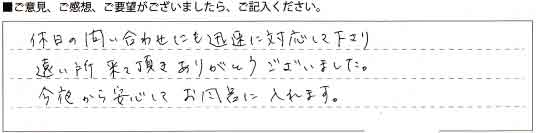 ■ご意見、ご感想、ご要望がございましたら、ご記入ください。
休日の問い合わせにも迅速に対応して下さり
遠い所来て頂きありがとうございました。
今夜から安心してお風呂に入れます。